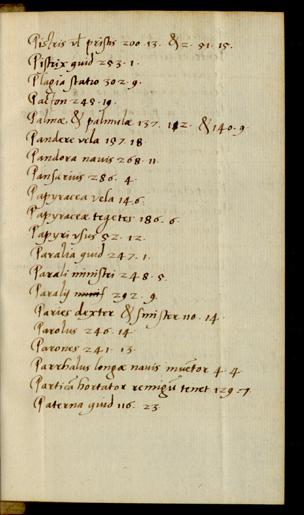 Pistris vl pristis 200. 13. & 2. 51. 15.
Pistrix quid 253. 1.
Plagia statio 302. 9.
Palton 245. 19.
Palmæ, & palmulæ 137. 12. & 140. 9.
Pandere vela 157. 18
Pandora nauis 268. 11
Pansarius 286. 4.
Papyracea vela 14. 6.
Papyraceæ tegetes 186. 6.
Papyri vsus 52. 12.
Paralia quid 247. 1.
Parali ministri 248. 5.
Paralij 292. 9.
Paries dexter & sinister 110. 14.
Parolus 246. 14
Parones 241. 13.
Parrhalus longæ nauis inuẽtor 4. 4
hortator remigiũ tenet 129. 7
Paterna quid 116. 23